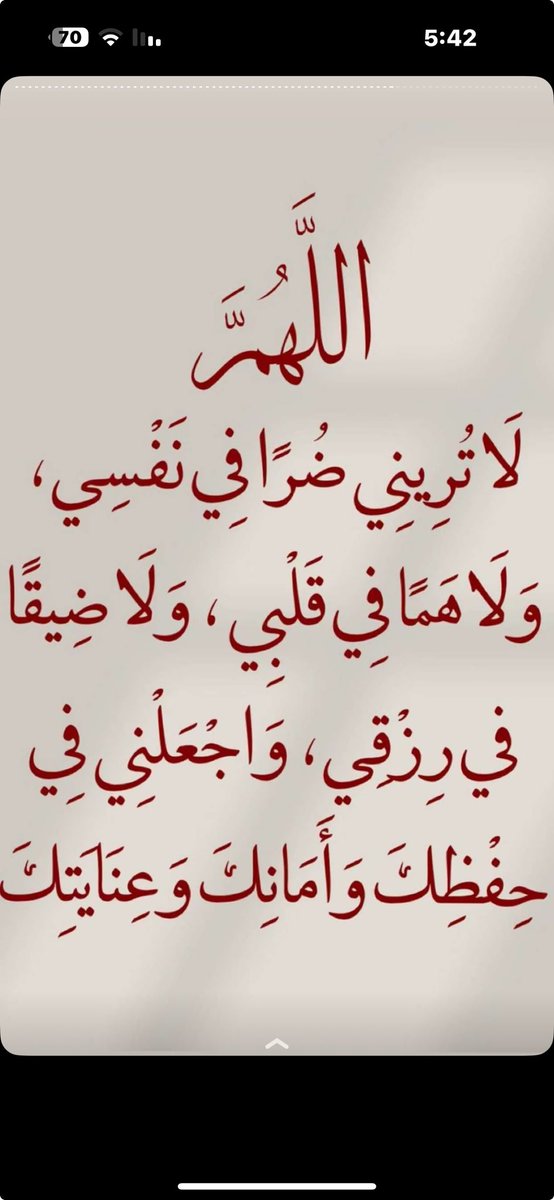 70
5:42
اللَّهُمَّ
لَا تُرِينِي ضُرًا فِي نَفْسِي،
وَلَا هَمًا فِي قَلْبِي، وَلَا ضِيقًا
في رِزْقِي، وَاجْعَلْنِي فِي
حِفْظِكَ وَأَمَانِكَ وَعِنَايَتِكَ